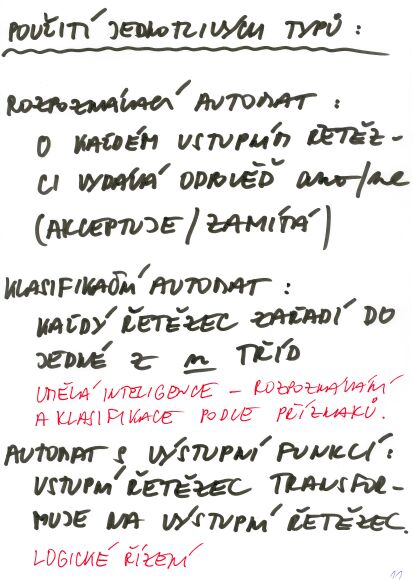 POUŽITÍ JEDNOTLIVÝCH TYPŮ :
ROZPOZNÁVACÍ AUTOMAT :
O KAŽDÉM VSTUPNÍM ŘETĚZ-
CI VYDÁVÁ ODPOVĚĎ ano/ne
(AKCEPTUJE / ZAMÍTÁ)
KLASIFIKAČNÍ AUTOMAT :
KAŽDÝ ŘETĚZEC ZAŘADÍ DO
JEDNÉ Z n TŘÍD
UMĚLÁ INTELIGENCE – ROZPOZNÁVÁNÍ
A KLASIFIKACE PODLE PŘÍZNAKŮ.
AUTOMAT S VÝSTUPNÍ FUNKCÍ:
VSTUPNÍ ŘETĚZEC TRANSFOR-
MUJE NA VÝSTUPNÍ ŘETĚZEC.
LOGICKÉ ŘÍZENÍ
11